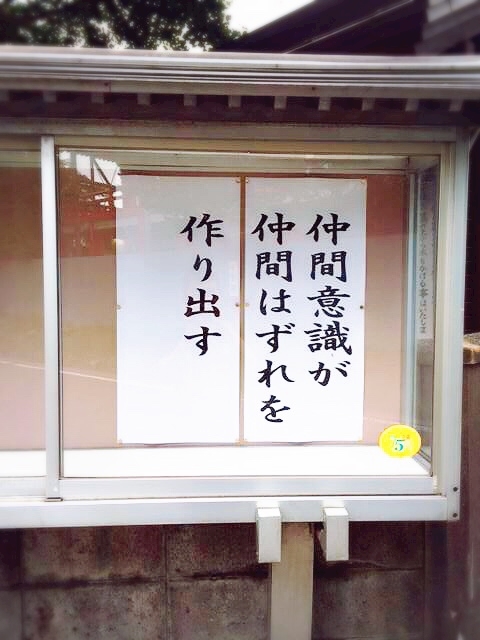 仲間意識が
仲間はずれを
作り出す
5